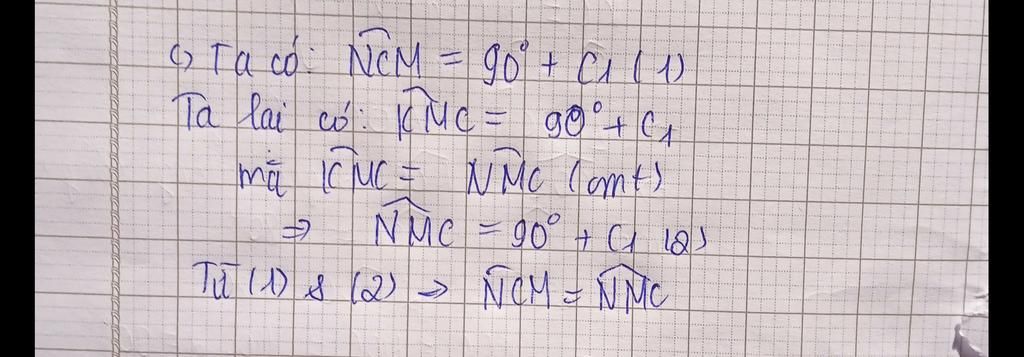 c) Ta có: NCM = 90° + C1 (1)
Ta lại có: KMC = 90° + C1
mà KMC = NMC (cmt)
⇒ NMC = 90° + C1 (2)
Từ (1) & (2) ⇒ NCM = NMC